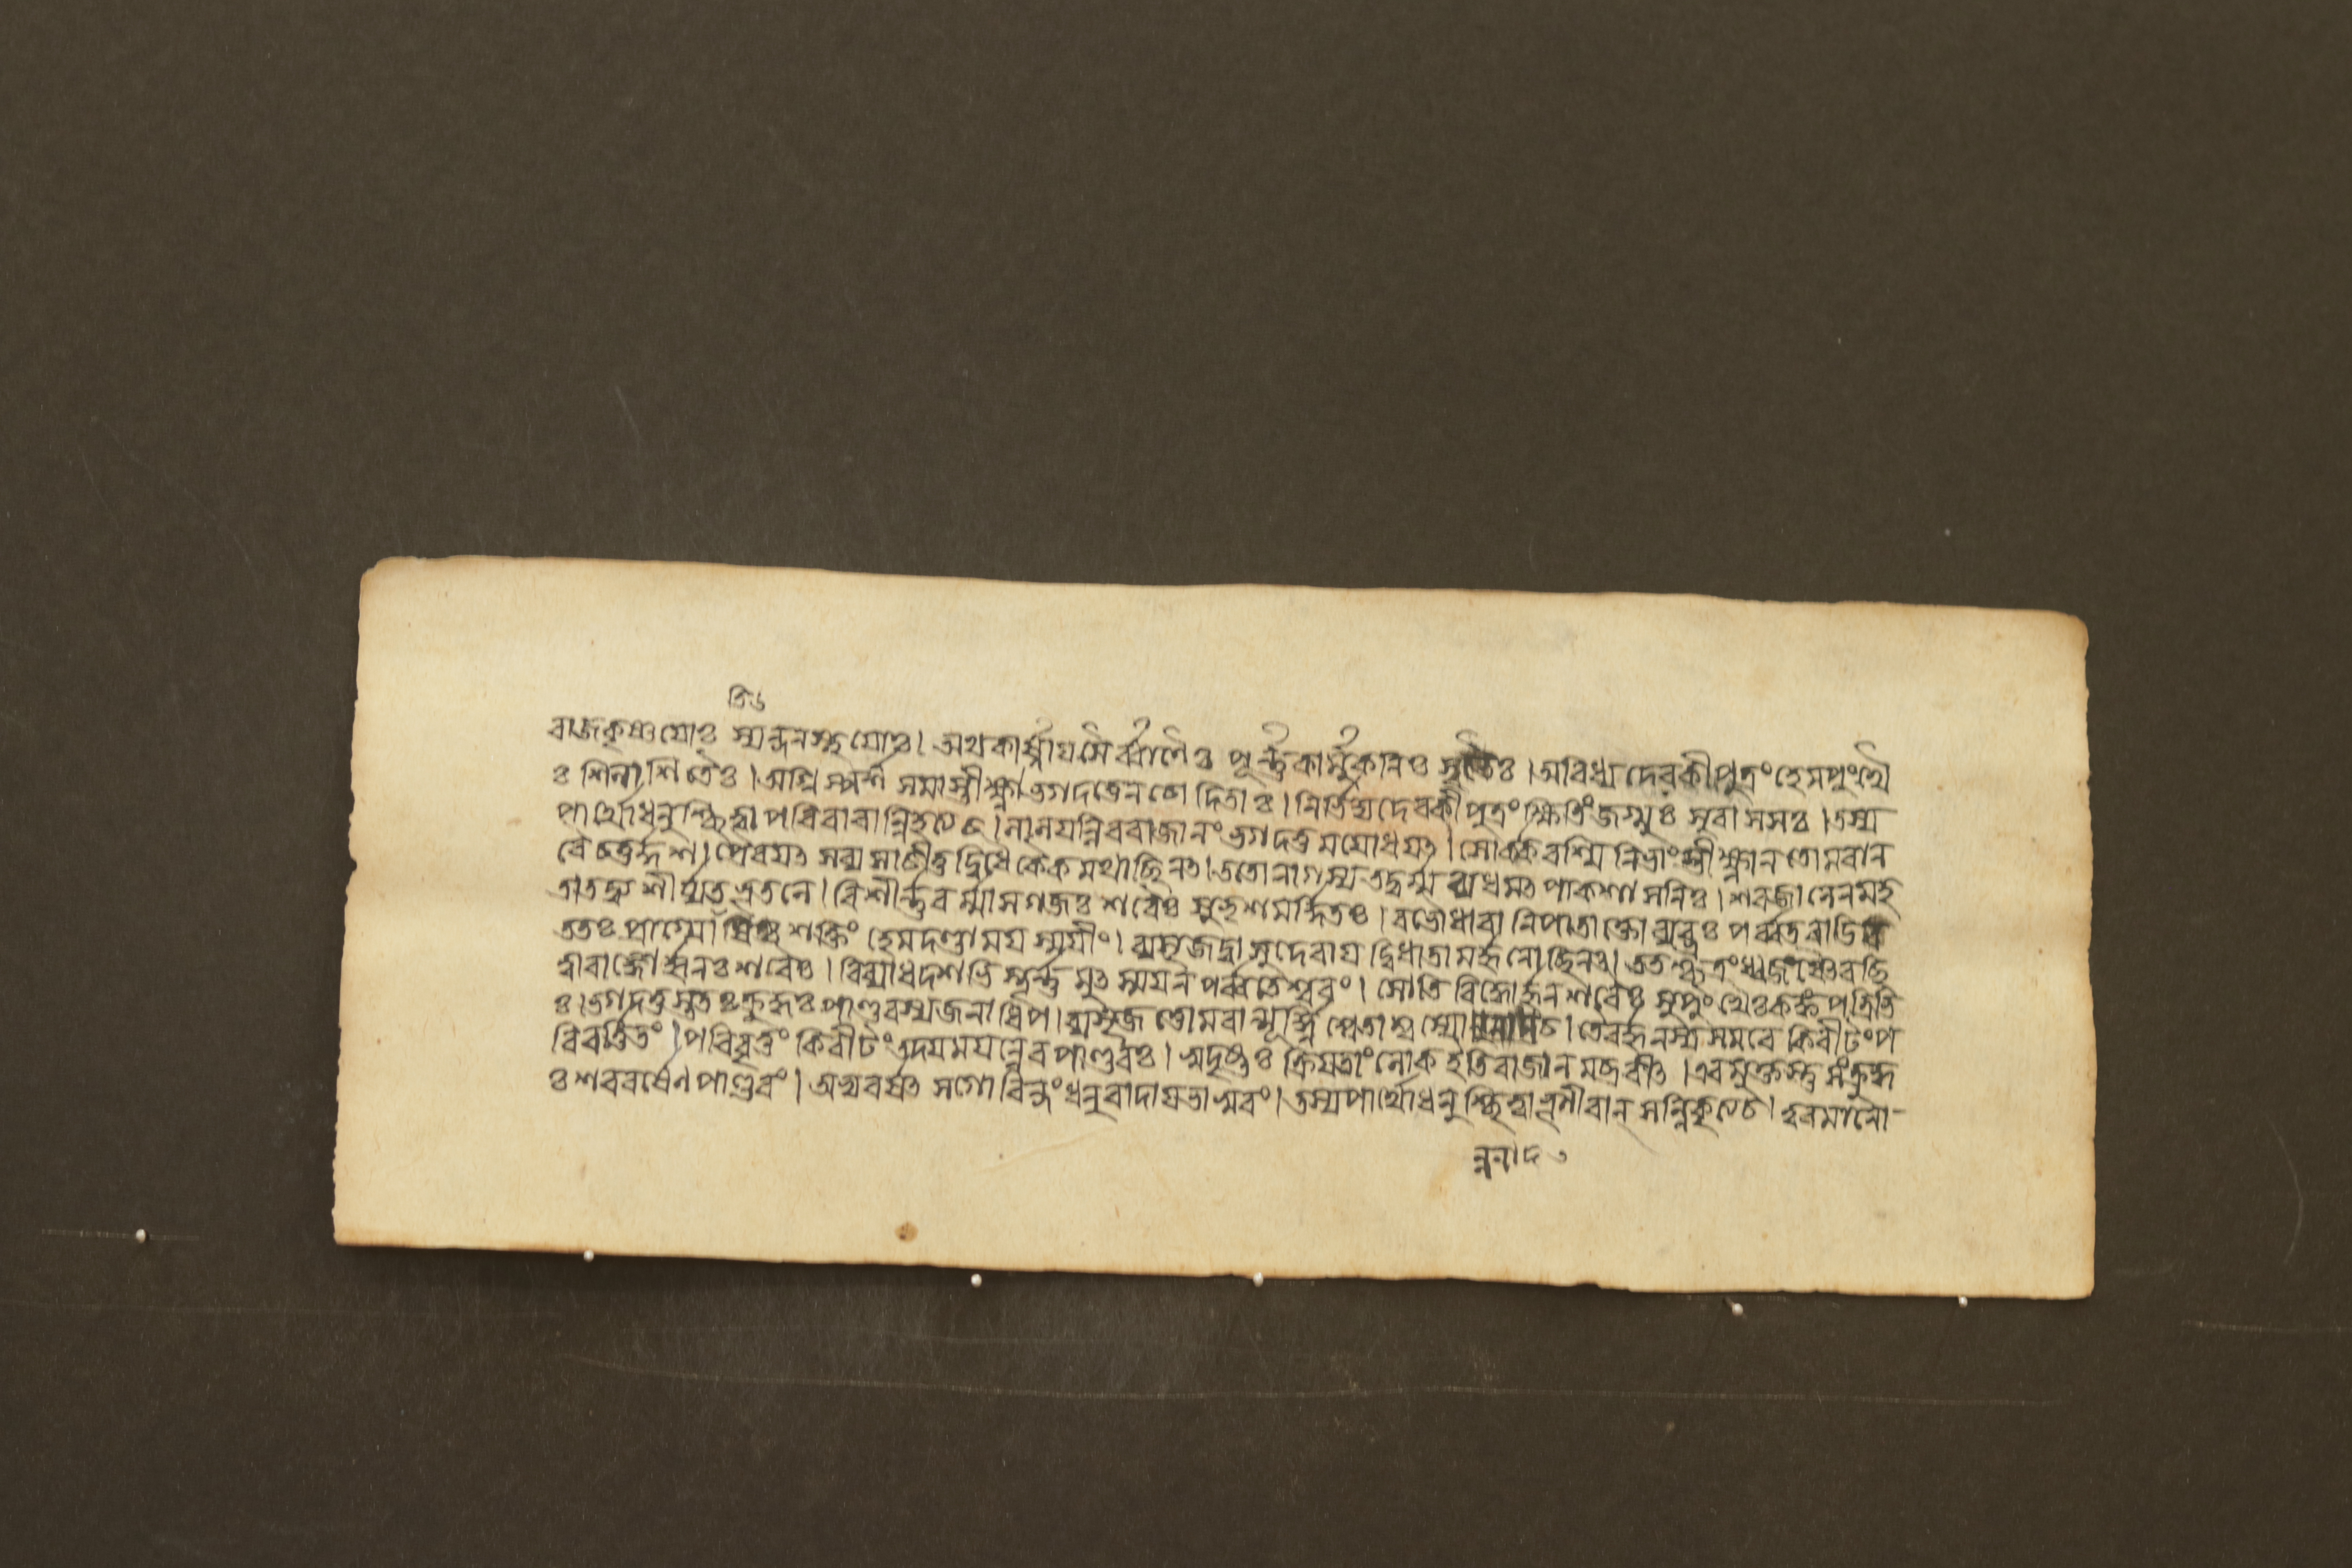 রাজকৃষ্ণয়োঃ স্যন্দনস্থয়োঃ। অথকার্ষ্ণায়সৈর্ব্বাণৈঃ পূর্ণ্ণকার্মুকনিঃসৃতৈঃ। অবিধ্যদ্দেবকীপুত্রং হেমপুংখৈ
ঃ শিলাশিতৈঃ। অগ্নিস্পর্শসমাস্তীক্ষ্ণা ভগদত্তেন চোদিতাঃ। নির্ভিদ্য দেবকীপুত্রং ক্ষিতিং জগ্মুঃ সুবাসসঃ। তস্য
পার্থোধনুশ্ছিত্ত্বা পরিবারান্নিহত্য চ। লালয়ন্নিব রাজানং ভগদত্তমযোধয়ৎ। সোর্করশ্মিনিভাংস্তীক্ষ্ণান তোমরান
বৈ চতুর্দ্দশ। প্রেরয়ৎ সব্যসাচীতু দ্বিধৈকৈকমথাছিনৎ। ততো নাগস্য তদ্বর্ম্ম ব্যধমৎ পাকশাসনিঃ। শরজালেন মহ
তা তদ্ব্যশীর্য্যত ভূতলে। বিশীর্ণ্ণবর্ম্মা সগজঃ শরৈঃ সুভৃশমর্দ্দিতঃ। বভৌ ধারানিপাতাক্তো ব্যভ্রঃ পর্ব্বতরাডিব
ততঃ প্রাগ্জ্যোতিষঃ শক্তিং হেমদণ্ডাময়স্ময়ীং। ব্যসৃজদ্বাসুদেবায় দ্বিধা তামর্জ্জুনোছিনৎ। ততশ্ছত্রং ধ্বজঞ্চৈব ছি
ত্ত্বা রাজ্ঞোর্জ্জুনঃ শরৈঃ। বিব্যাধ দশভিস্তূর্ণ্ণমুৎস্ময়ন পর্ব্বতেশ্বরং। সোতিবিদ্ধোর্জ্জুনশরৈঃ সুপুংখৈঃ কঙ্কপত্রিভি
ঃ। ভগদত্তস্ততঃ ক্রুদ্ধঃ পাণ্ডবস্য জনাধিপ। ব্যসৃজত্তোমরান্মূর্ধ্নি শ্বেতাশ্বস্যোন্ননাদ চ। তৈরর্জ্জুনস্য সমরে কিরীটং প
রিবর্ত্তিতং। পরিবৃত্তং কিরীটং তদ্যময়ন্নেব পাণ্ডবঃ। সুদৃষ্টঃ ক্রিয়তাং লোক ইতি রাজানমব্রবীৎ। এবমুক্তস্তু সংক্রুদ্ধ
ঃ শরবর্ষেণ পাণ্ডবং। অভ্যবর্ষৎ সগোবিন্দং ধনুরাদায় ভাস্বরং। তস্য পার্থো ধনুশ্ছিত্ত্বা তূণীরান্ সন্নিকৃত্য চ। ত্বরমাণো
ন্ননাদ